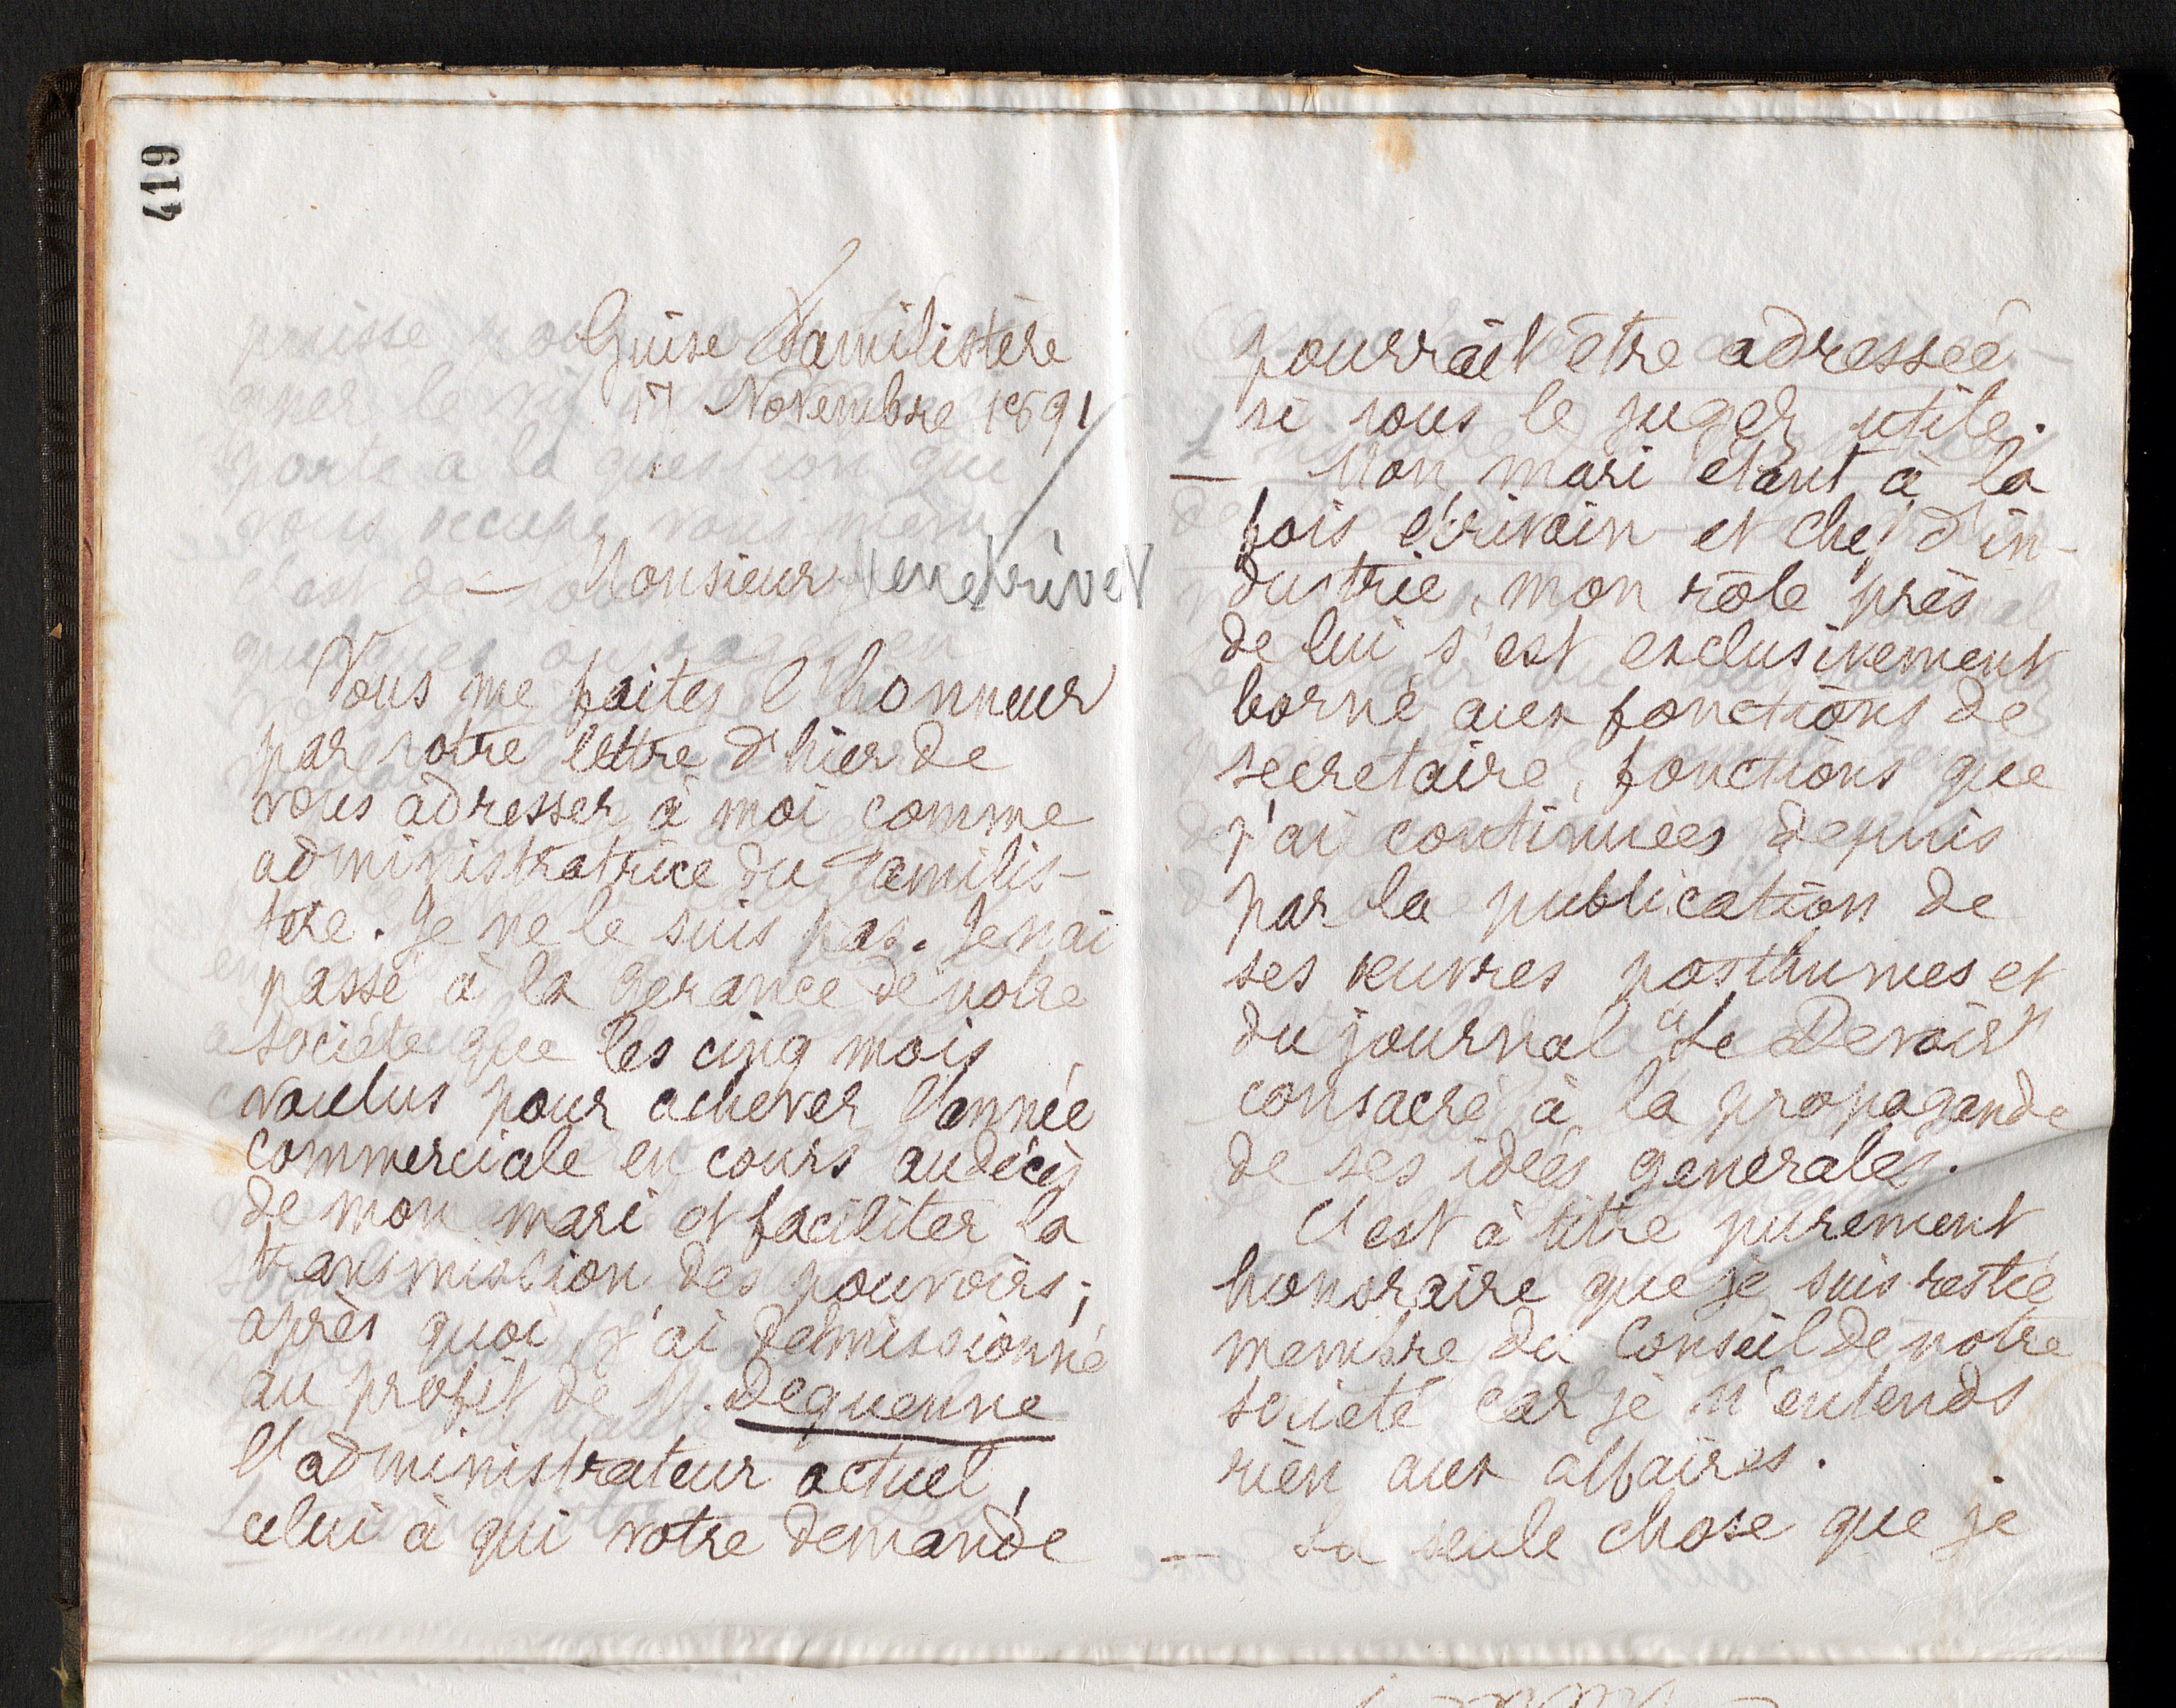 419
Guise Familistère
17 Novembre 1891
Monsieur
Vous me faites l'honneur
par votre lettre d'hier de
vous adresser à moi comme
administratrice du Familis-
tère. Je ne le suis pas. Je n'ai
passé à la gérance de notre
société que les cinq mois
voulus pour achever l'année
commerciale en cours au décès
de mon mari et faciliter la
transmission des pouvoirs;
après quoi j'ai démissionné
au profit de M. Dequenne
l'administrateur actuel,
celui à qui votre demande
pourrait être adressée
si vous le jugez utile.
— Mon mari étant à la
fois écrivain et chef d'in-
dustrie, mon rôle près
de lui s'est exclusivement
borné aux fonctions de
secrétaire, fonctions que
j'ai continuées depuis
par la publication de
ses œuvres posthumes et
du journal "Le Devoir"
consacré à la propagande
de ses idées générales.
C'est à titre purement
honoraire que je suis restée
membre du Conseil de notre
société car je n'entends
rien aux affaires.
— La seule chose que je